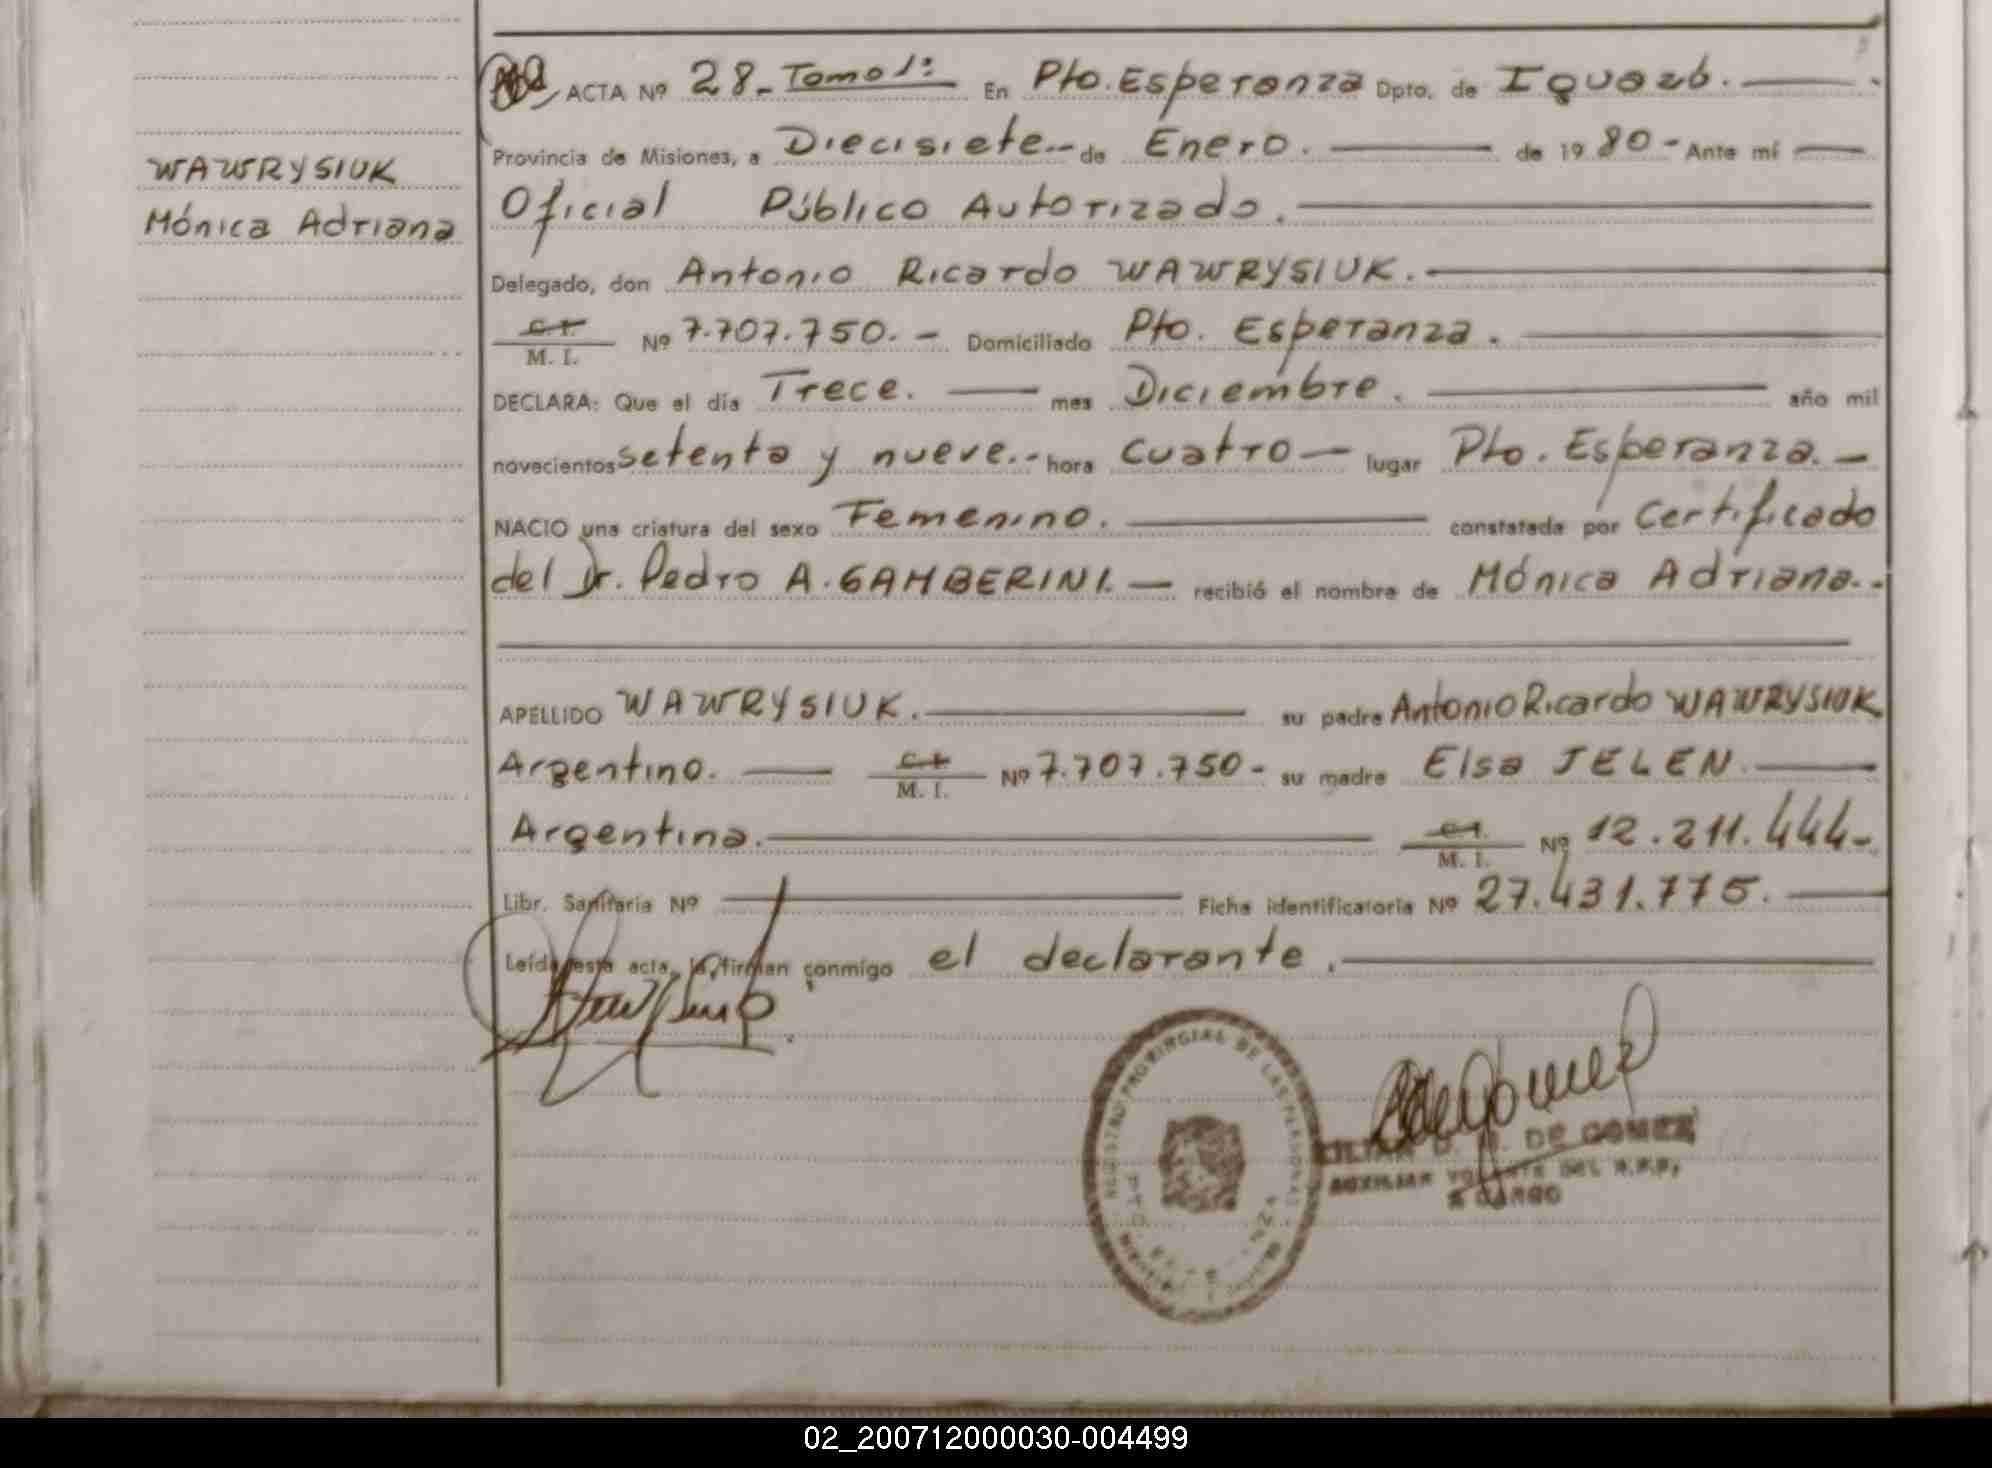 ACTA Nº 28.- Tomo 1º En Pto. Esperanza Dpto. de Iguazú.
Provincia de Misiones, a Diecisiete.- de Enero. de 19 80 - Ante mí
WAWRYSIUK
Mónica Adriana
Oficial Público Autorizado.
Delegado, don Antonio Ricardo WAWRYSIUK.
C. I.
M. I. Nº 7.707.750. - Domiciliado Pto. Esperanza.
DECLARA: Que el día Trece. mes Diciembre. año mil
novecientos setenta y nueve.- hora cuatro — lugar Pto. Esperanza. -
NACIO una criatura del sexo Femenino. constatada por Certificado
del Dr. Pedro A. GAMBERINI. — recibió el nombre de Mónica Adriana.-
APELLIDO WAWRYSIUK. su padre Antonio Ricardo WAWRYSIUK
Argentino. C. I.
M. I. Nº 7.707.750 - su madre Elsa JELEN.
Argentina. C. I.
M. I. Nº 12.211.444-
Libr. Sanitaria Nº Ficha identificatoria Nº 27.431.775.
Leída esta acta, la firman conmigo el declarante.
REGISTRO PROVINCIAL DE LAS PERSONAS
DE GOMEZ
AUXILIAR DEL R.P.P.
A CARGO
02_200712000030-004499